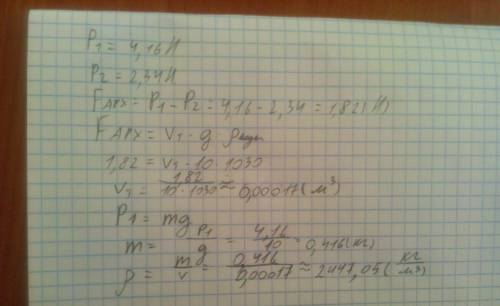 P₁ = 4,16Н
P₂ = 2,34Н
Fарх = P₁ - P₂ = 4,16 - 2,34 = 1,82(Н)
Fарх = Vт · g ·
1,82 = Vт · 10 · 1030
Vт = 1,82 / 10 · 1030 ≈ 0,00017 (м³)
P₁ = mg
m = P₁ / g = 4,16 / 10 = 0,416(кг)
ρ = m / V = 0,416 / 0,00017 ≈ 2447,05 (кг / м³)